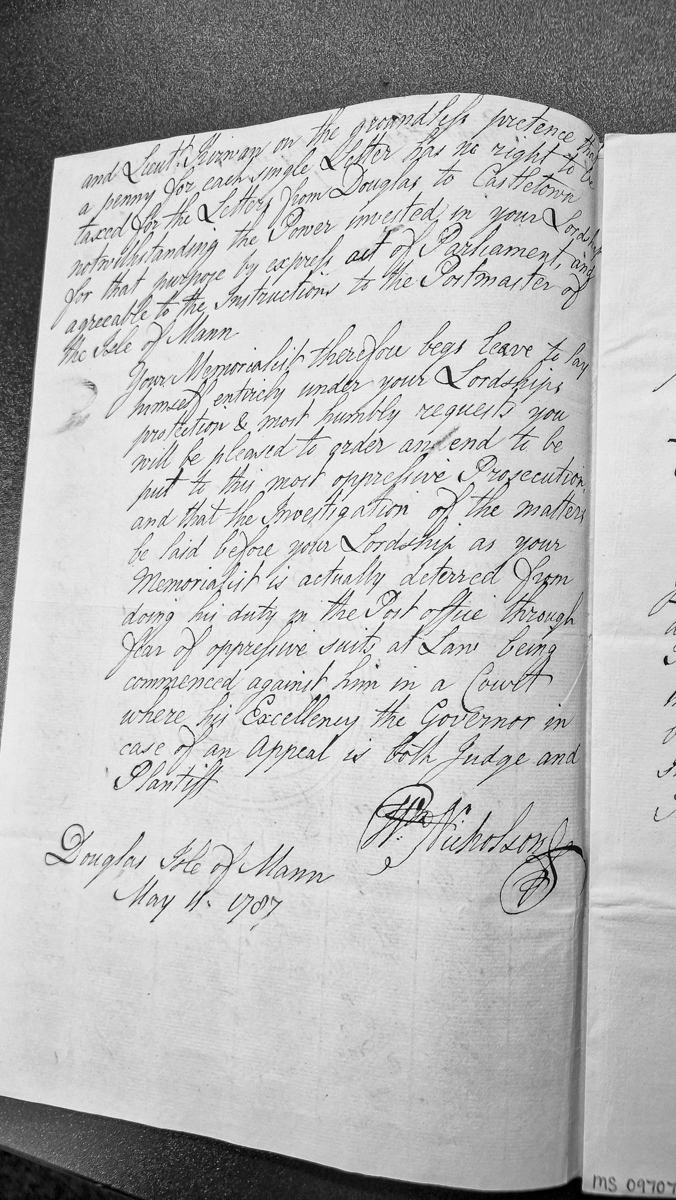 and Lieut. Kirwan on the groundless pretence that
a penny for each single Letter has no right to be
taxed for the Letters from Douglas to Castletown
notwithstanding the Power invested in your Lordship
for that purpose by express act of Parliament, and
agreeable to the Instructions to the Postmaster of
the Isle of Mann
Your Memorialist therefore begs leave to lay
himself entirely under your Lordships
protection & most humbly requests you
will be pleased to order an end to be
put to this most oppressive Prosecution,
and that the Investigation of the matters
be laid before your Lordship as your
Memorialist is actually deterred from
doing his duty in the Post office through
fear of oppressive suits at Law being
commenced against him in a Court
where his Excellency the Governor in
case of an Appeal is both Judge and
Plantiff
Wm. Nicholson
Douglas Isle of Mann
May 11. 1787
MS 09707